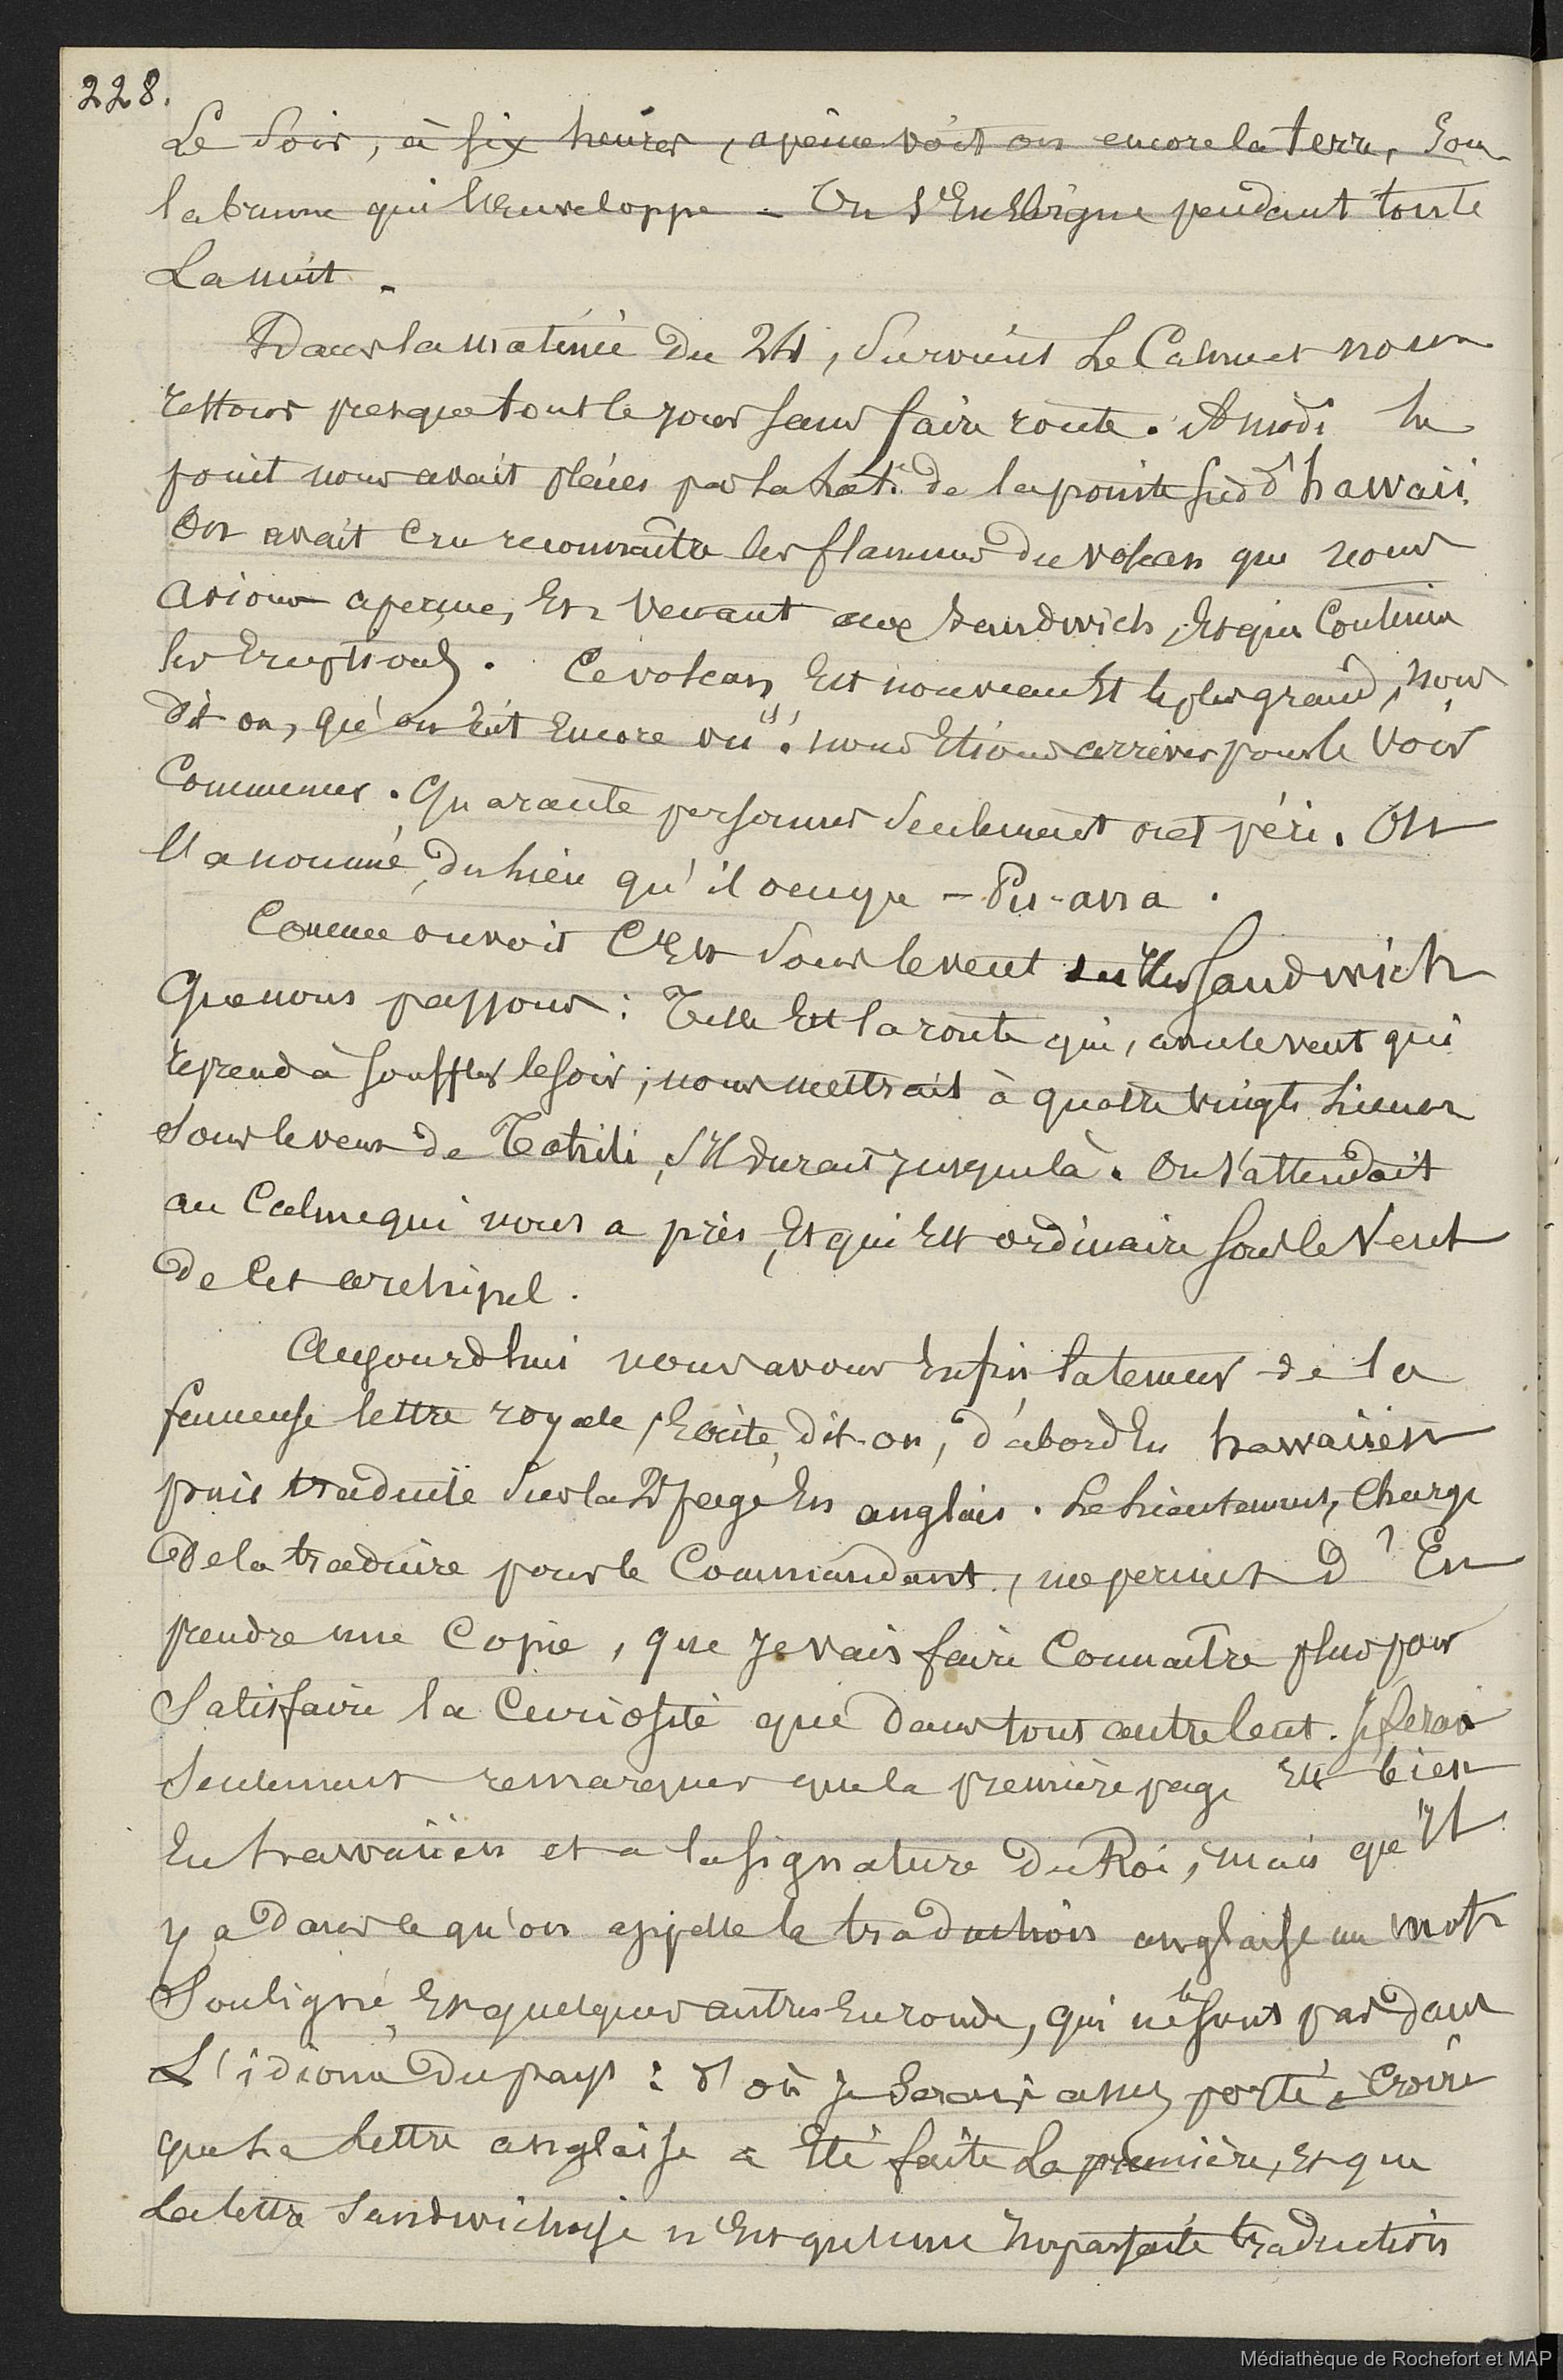 228.
Le Soir, à six heures, apeine voit on encore la terre, Sous
la brume qui l'Enveloppe - On S'En Eloigne pendant toute
La nuit.
Dans la matinée Du 24, Survient Le Calme et nous
restons presque tout le jour sans faire route. A midi le
point nous avait placés par la Lat. de la pointe Sud d'hawaii.
On avait Cru reconnaître les flammes du volcan que nous
avions aperçue, En Venant aux Sandwich, Et qui Continu
les Eruptions. Ce volcan Est nouveau Et le plus grand, nous
dit on, qu'on Eut Encore vu. nous Etions arrivés pour le Voir
Commencer. Quarante personnes Seulement ont péri. On
l'a nommé, du lieu qu'il occupe - Pu-ana.
Comme on voit C'Est Sous le vent des Iles Sandwich
Que nous passons : Telle Est la route qui, avec le vent qui
reprend à Souffler le soir, nous mettrait à quatre vingts Lieues
Sous le vent de Tahiti, S'Il durait jusque là. On S'attendait
au Calme qui nous a pris, Et qui Est ordinaire sous le Vent
de Cet archipel.
Aujourd'hui nous avons Enfin la teneur de la
fameuse lettre royale, Ecrite, dit-on, d'abord En hawaiien
puis traduite Sur la 2e page En anglais. Le Lieutenant, Chargé
De la traduire pour le Commandant, me permet d'En
prendre une Copie, que Je vais faire Connaître plus pour
Satisfaire la Curiosité que dans tout autre but. Je ferai
Seulement remarquer que la première page Est bien
En hawaiien et a la signature Du Roi, mais qu'Il
y a Dans ce qu'on appelle la traduction anglaise un mot
Souligné, Et quelques autres En ronde, qui ne le sont pas dans
L'idiome Du pays : d'où Je Serais assez porté à Croire
que La Lettre anglaise a Eté faite La première, Et que
La lettre Sandwichoise n'Est qu'une Imparfaite traduction
Médiathèque de Rochefort et MAP